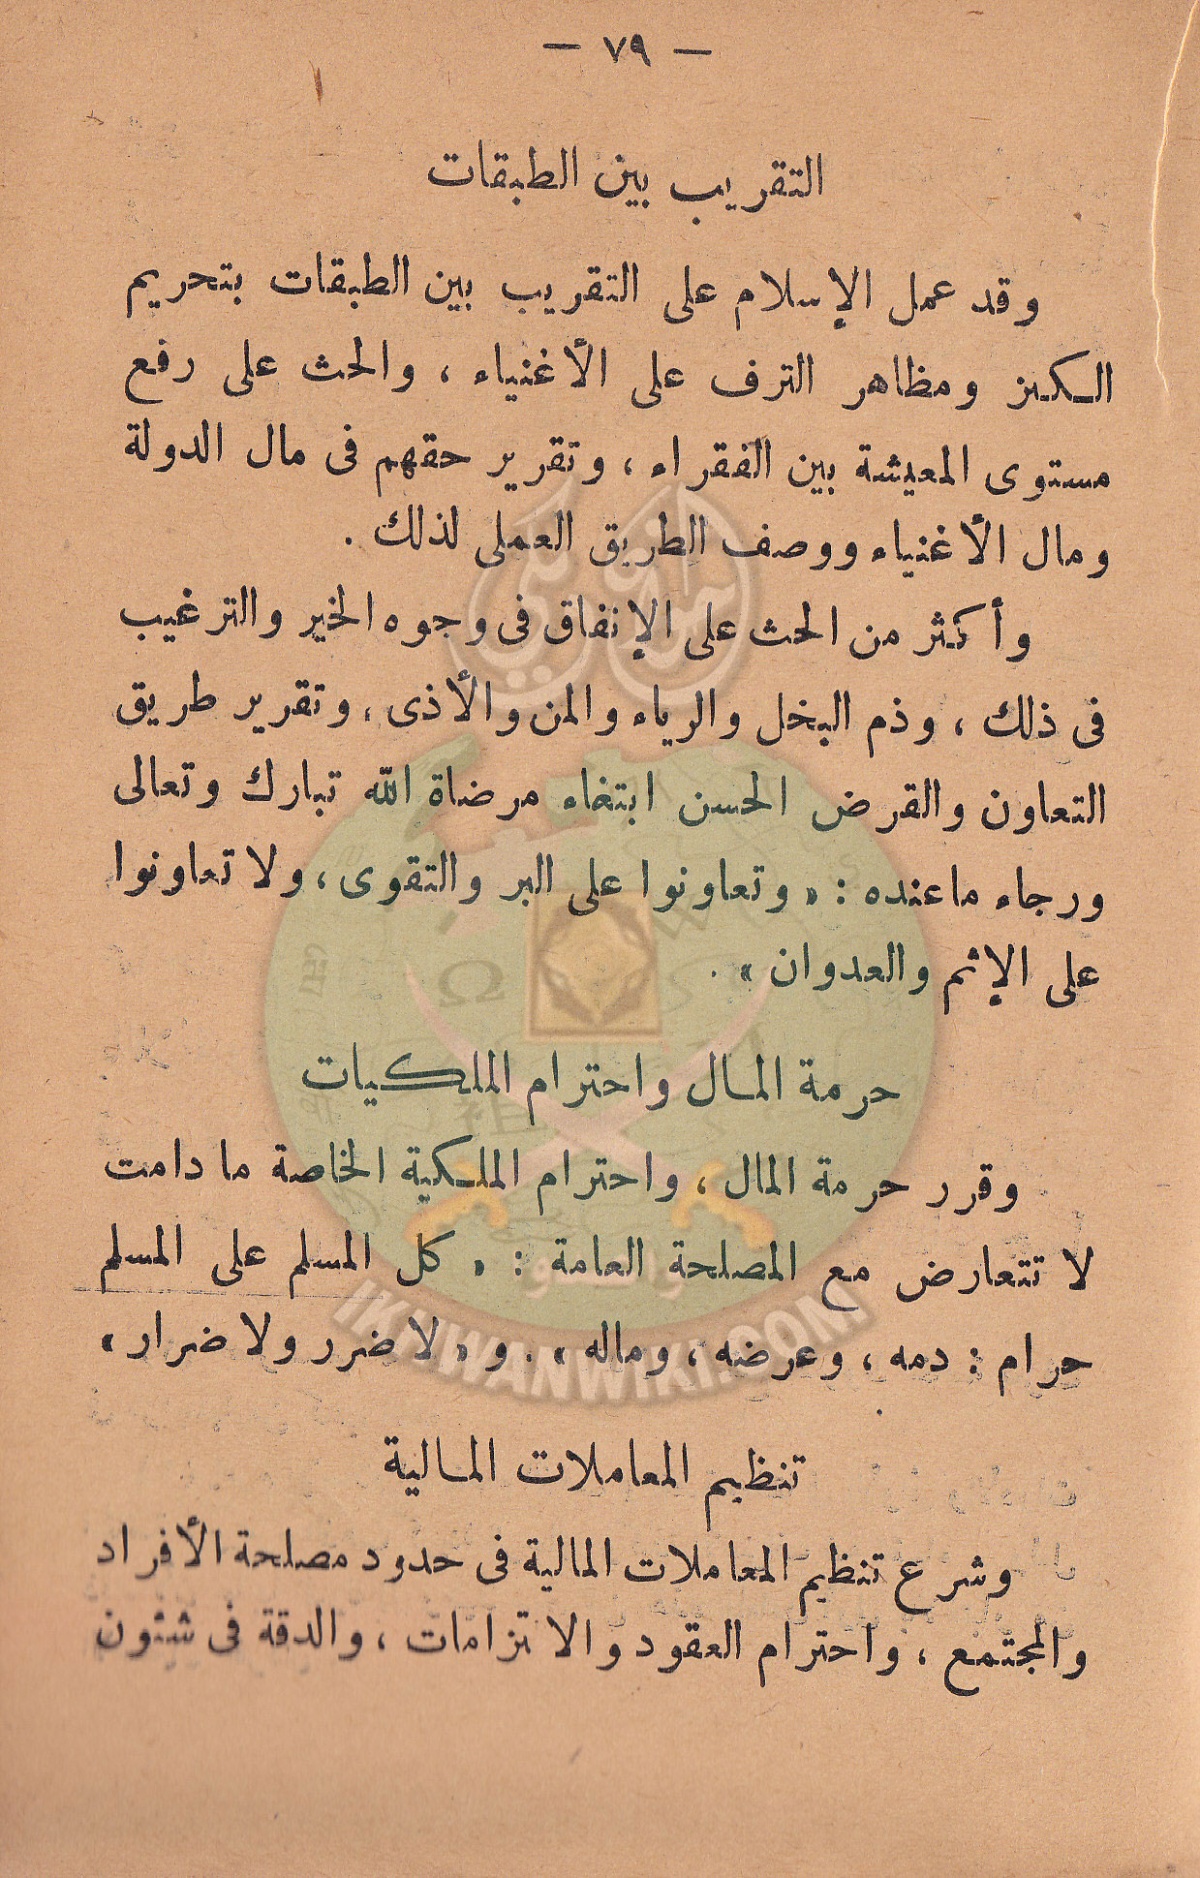 — ٧٩ —
التقريب بين الطبقات
وقد عمل الإسلام على التقريب بين الطبقات بتحريم
الكنز ومظاهر الترف على الأغنياء ، والحث على رفع
مستوى المعيشة بين الفقراء ، وتقرير حقهم فى مال الدولة
ومال الأغنياء ووصف الطريق العملى لذلك .
وأكثر من الحث على الإنفاق فى وجوه الخير والترغيب
فى ذلك ، وذم البخل والرياء والمن والأذى ، وتقرير طريق
التعاون والقرض الحسن ابتغاء مرضاة الله تبارك وتعالى
ورجاء ماعنده : « وتعاونوا على البر والتقوى ، ولا تعاونوا
على الإثم والعدوان » .
حرمة المال واحترام الملكيات
وقرر حرمة المال ، واحترام الملكية الخاصة ما دامت
لا تتعارض مع المصلحة العامة : « كل المسلم على المسلم
حرام : دمه ، وعرضه ، وماله » . و « لا ضرر ولا ضرار »
.
تنظيم المعاملات المالية
وشرع تنظيم المعاملات المالية فى حدود مصلحة الأفراد
والمجتمع ، واحترام العقود والا تزامات ، والدقة فى شئون
IKHWANWIKI.COM